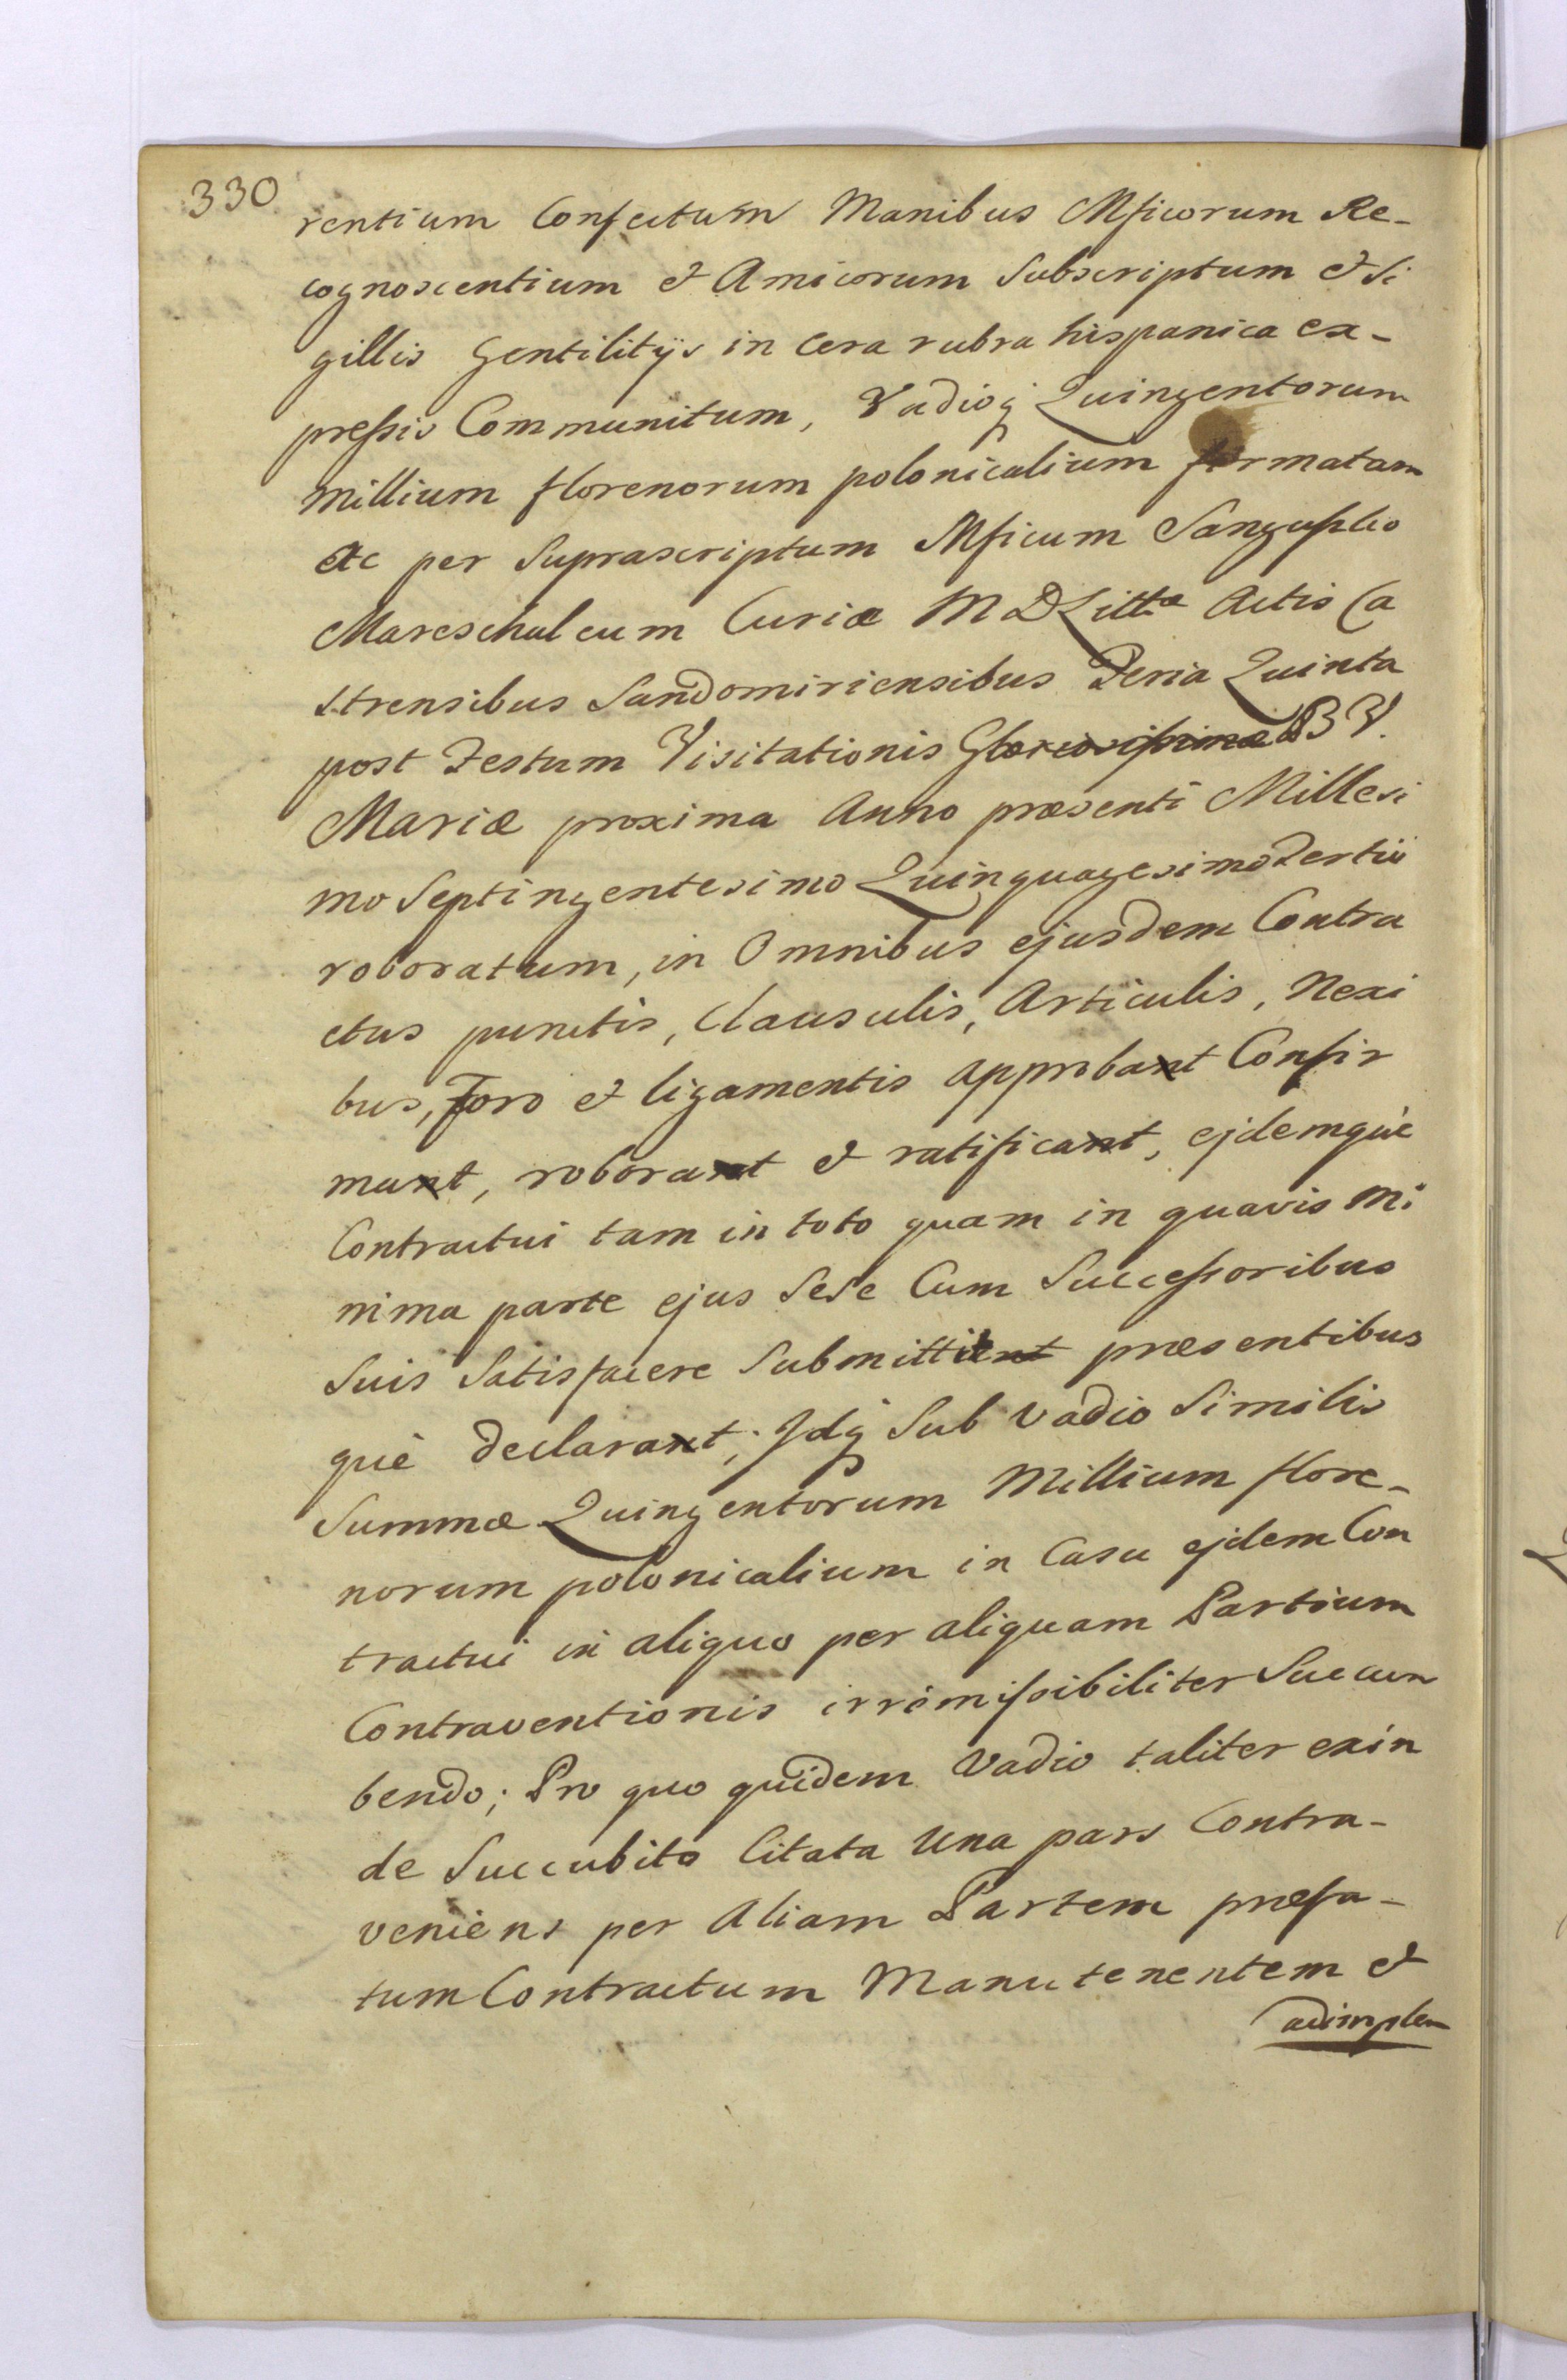 330
rentium Confectum Manibus Mficorum Re-
cognoscentium et Amicorum Subscriptum et Si
gillis Gentilitijs in Cera rubra hispanica ex-
preſsis Communitum, Vadioq Quingentorum
Millium florenorum polonicalium firmatam
ac per Suprascriptum Mficum Sanguſzko
Mareschalcum Curiæ M D Littæ Actis Ca
strensibus Sandomiriensibus Feria Quinta
post Festum Visitationis Gloriosiſsimæ B V.
Mariæ proxima Anno præsenti Millesi
mo Septingentesimo Quinquagesimo Tertio
roboratum, in Omnibus ejusdem Contra
ctus punctis, Clausulis, Articulis, Nexi
bus, Foro et ligamentis approbant Confir
mant, roborant et ratificant, ejdemquè
Contractui tam in toto quam in quavis Mi
nima parte ejus Sese Cum Succeſsoribus
Suis Satisfacere Submittit præsentibus
què declarant; Idq Sub Vadio Similis
Summæ Quingentorum Millium flore-
norum polonicalium in Casu ejdem Con
tractui in aliquo per aliquam Partium
Contraventionis irremiſsibiliter Succum
bendo; Pro quo quidem Vadio taliter exin
de Succubito Citata Una pars Contra-
veniens per Aliam Partem præfa-
tum Contractum Manutenentem et
adimplen